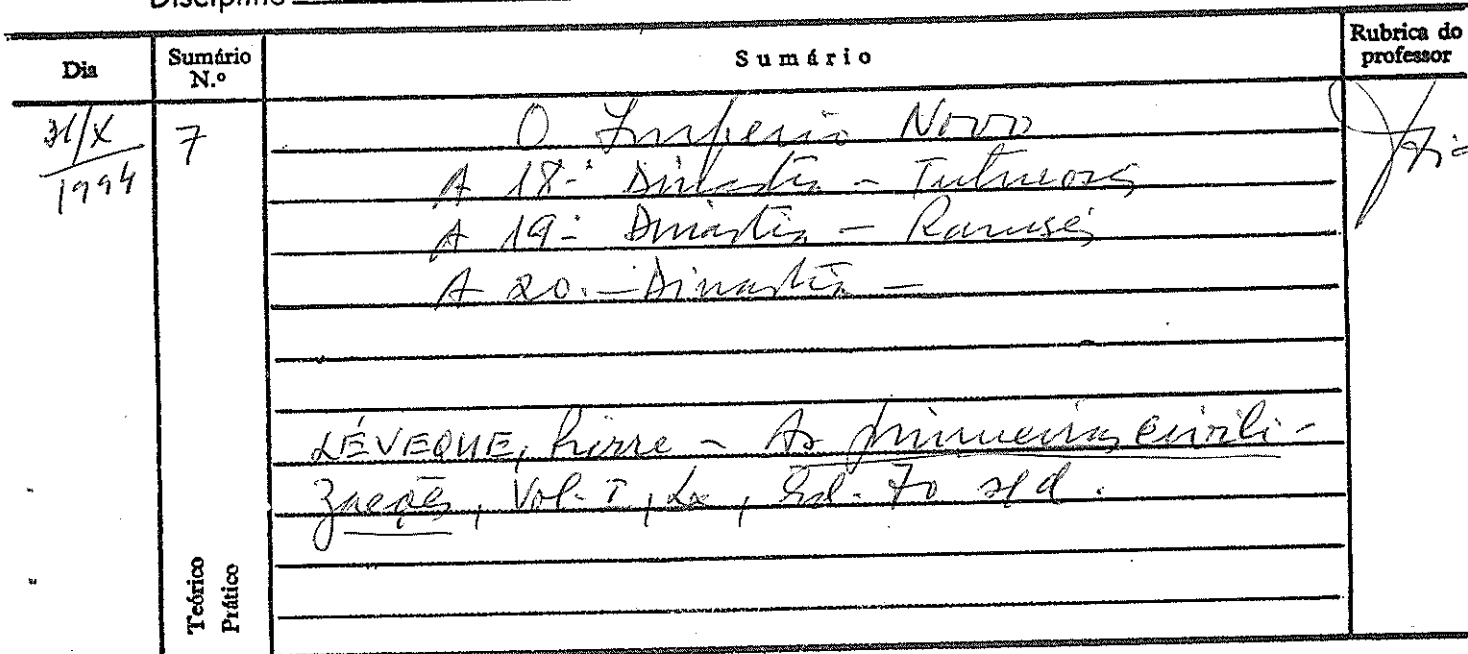 Disciplina
Dia
Sumário N.º
Sumário
Rubrica do professor
31/X 1994
7
O Imperio Novo
A 18.ª Dinastia - Tutmosés
A 19.ª Dinastia - Ramsés
A 20.ª - Dinastia -
LÉVEQUE, Pierre - As primeiras civili-
zações, Vol. I, Lx, Ed. 70 s/d.
Teórico
Prático